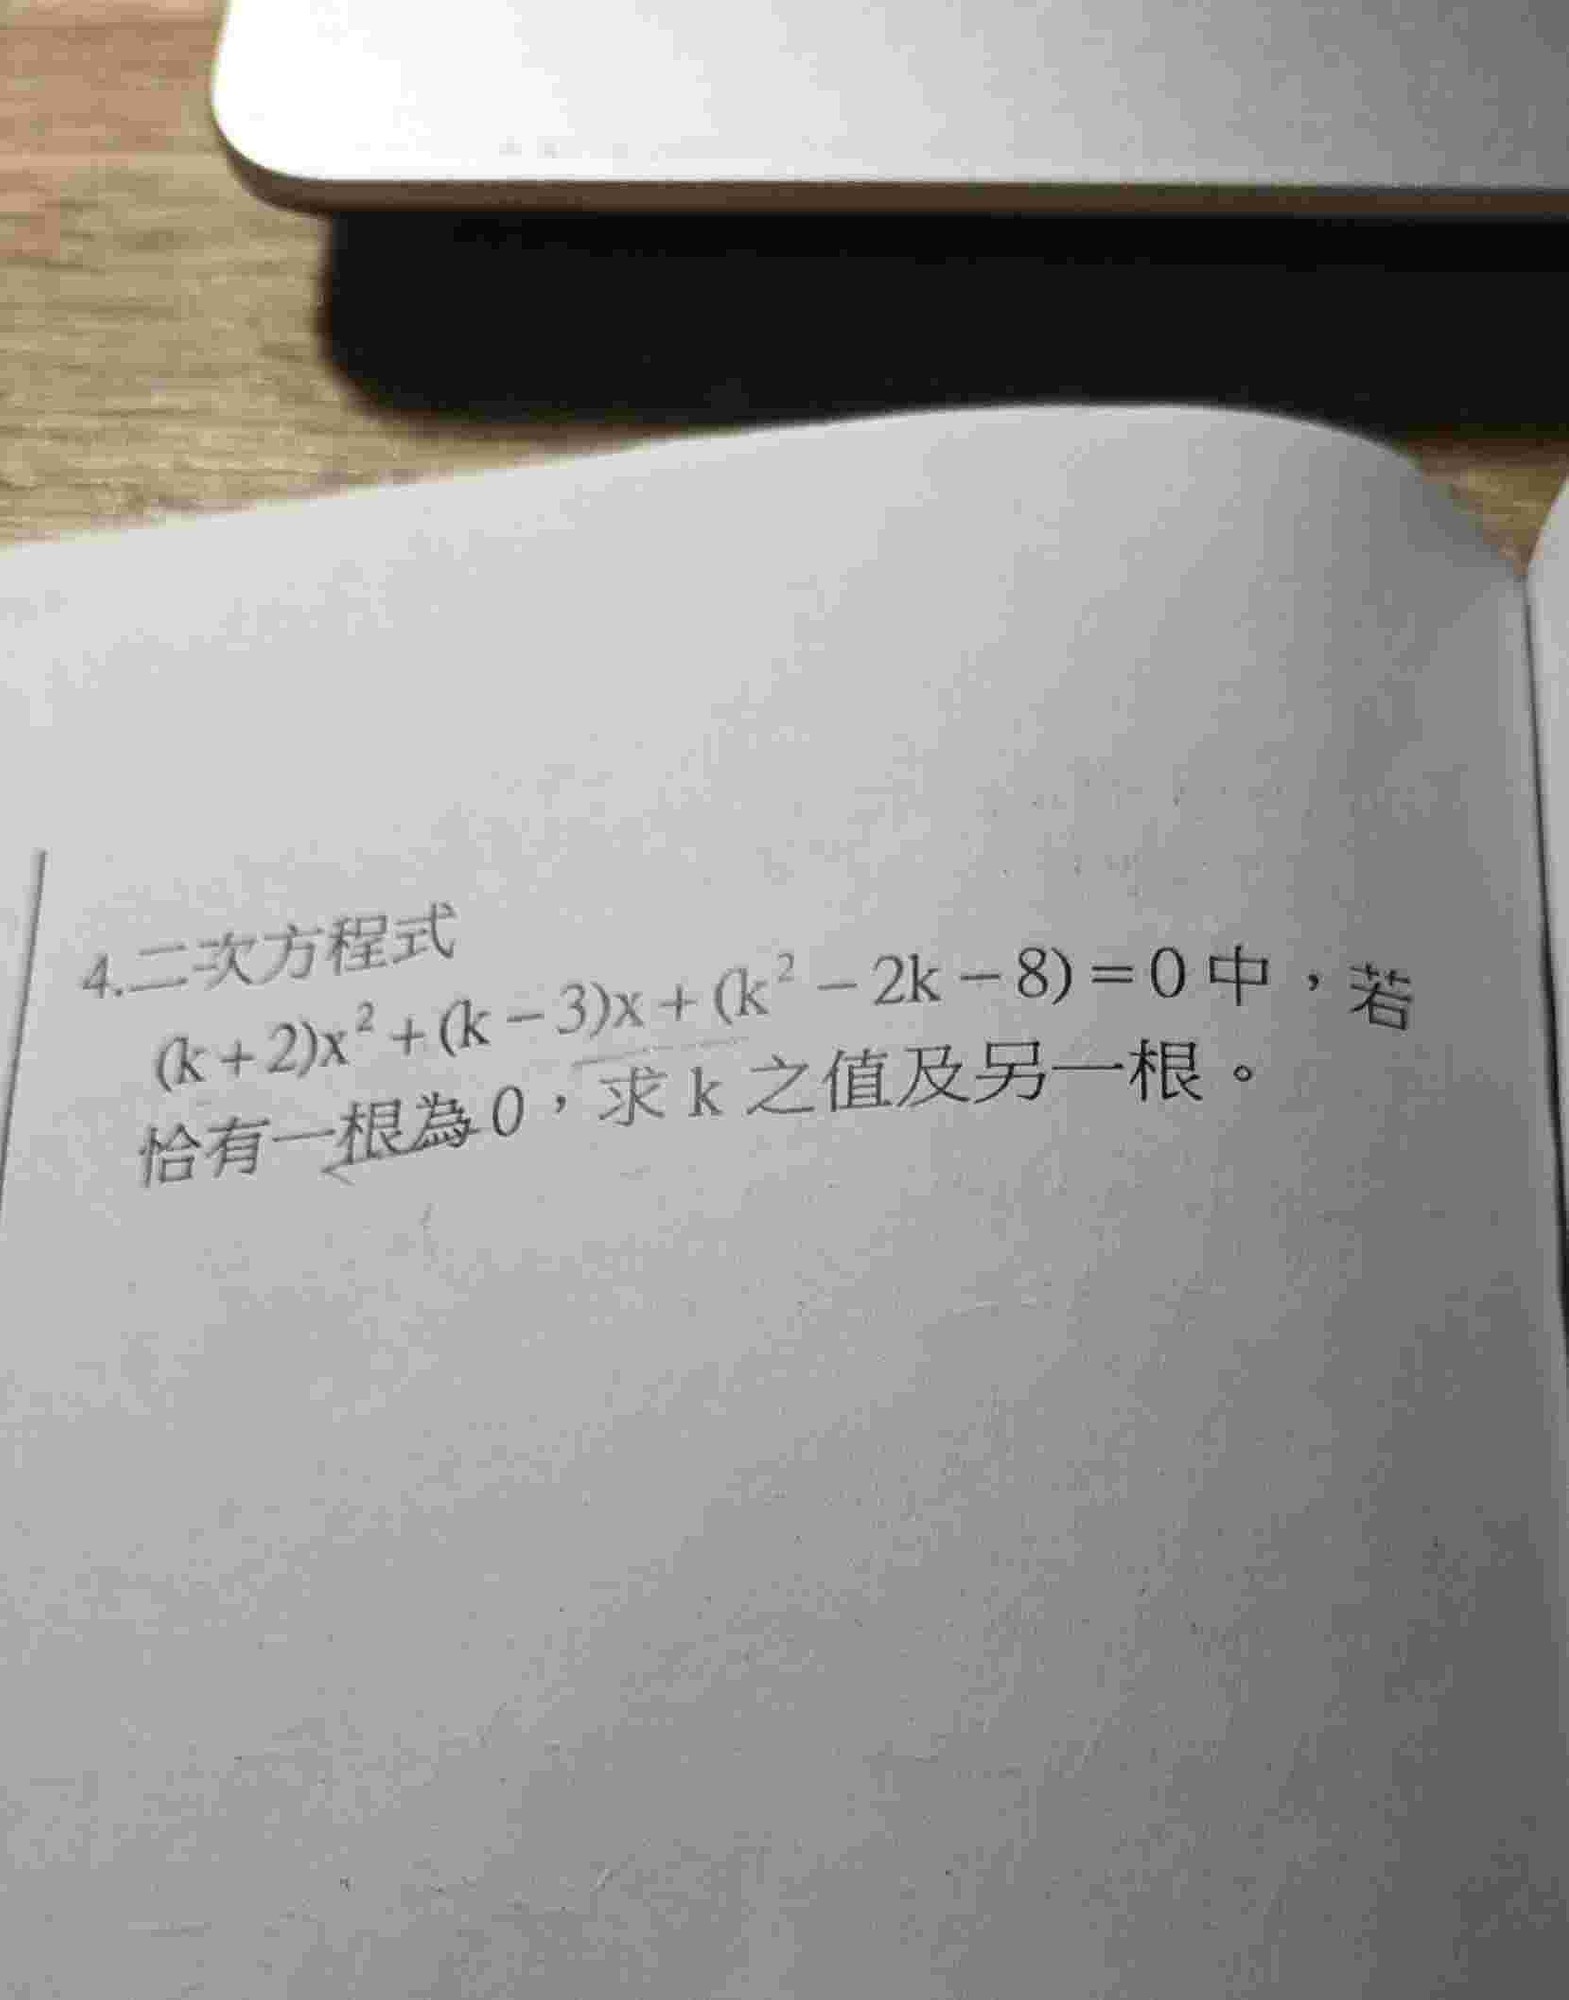 4.二次方程式
(k+2)x²+(k-3)x+(k²-2k-8)=0中，若
恰有一根為0，求k之值及另一根。